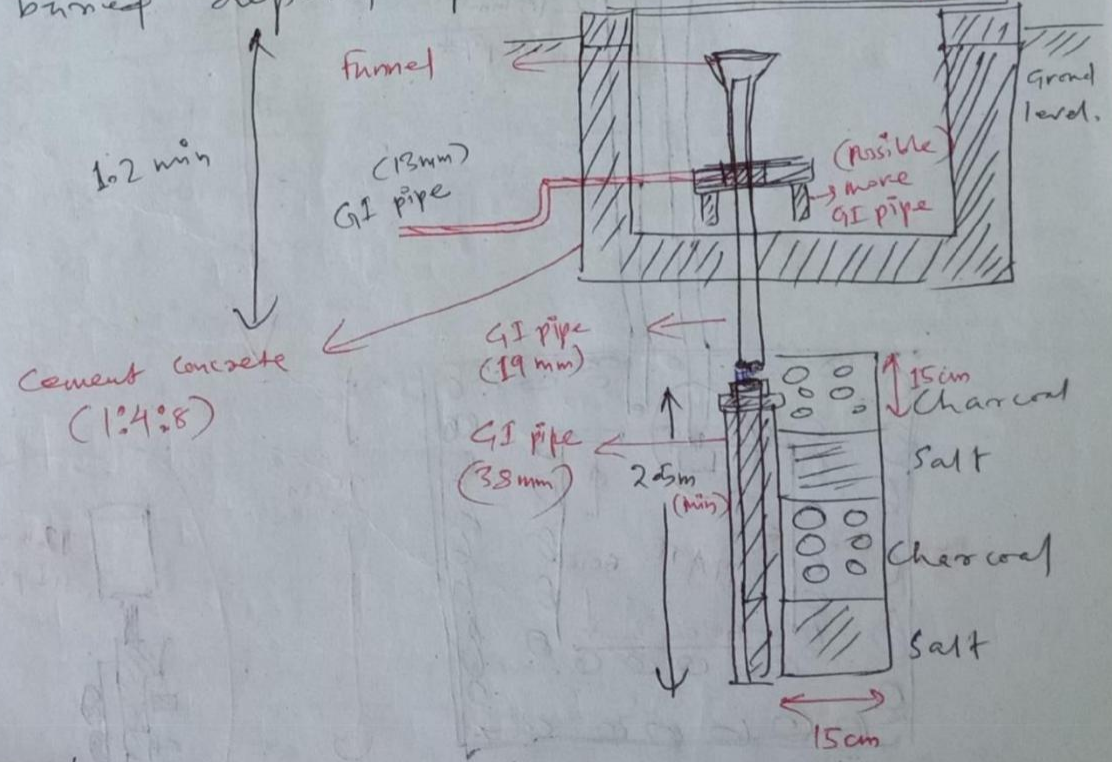 buried deep
Funnel
Grond
level.
1.2 min
(13mm)
GI pipe
(possible)
more
GI pipe
Cement concrete
(1:4:8)
GI pipe
(19 mm)
15cm
Charcoal
GI pipe
(38mm)
Salt
(min)
Charcoal
Salt
15cm